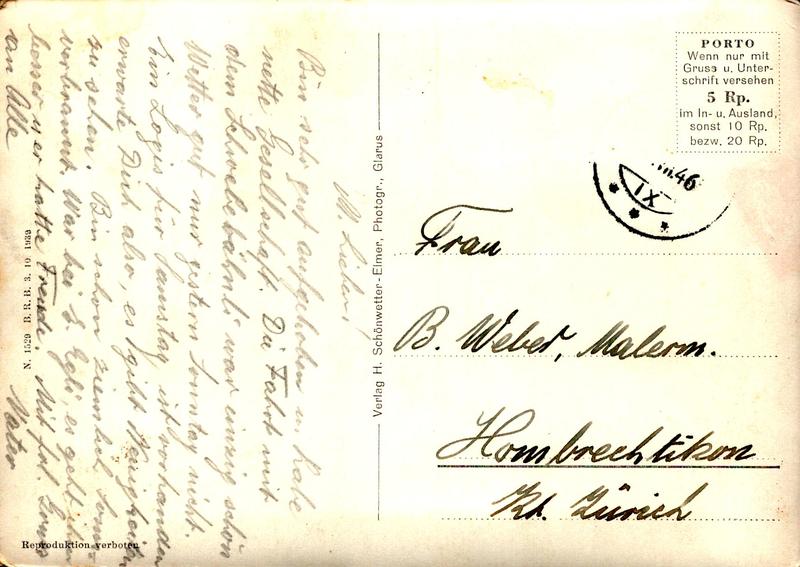 M. Lieben!
Bin sehr gut aufgehoben u. habe
nette Gesellschaft. Die Fahrt mit
dem Schwebebähnli war einzig schön
Wetter gut nur gestern Sonntag nicht.
Ein Logis für Samstag ist vorhanden
erwarte Dich also, es gilt
zu sehen. Bin schon ziemlich
verbrannt. War bei S. Egli, es geht
besser u er hatte Freude. Mit frl. Gruss
an Alle
Vater
N. 1529 B.R.B. 3. 10. 1939
Reproduktion verboten
Verlag H. Schönwetter-Elmer, Photogr., Glarus
PORTO
Wenn nur mit
Gruss u. Unter-
schrift versehen
5 Rp.
im In- u. Ausland,
sonst 10 Rp.
bezw. 20 Rp.
46
IX
Frau
B. Weber, Malerm.
Hombrechtikon
Kt. Zürich